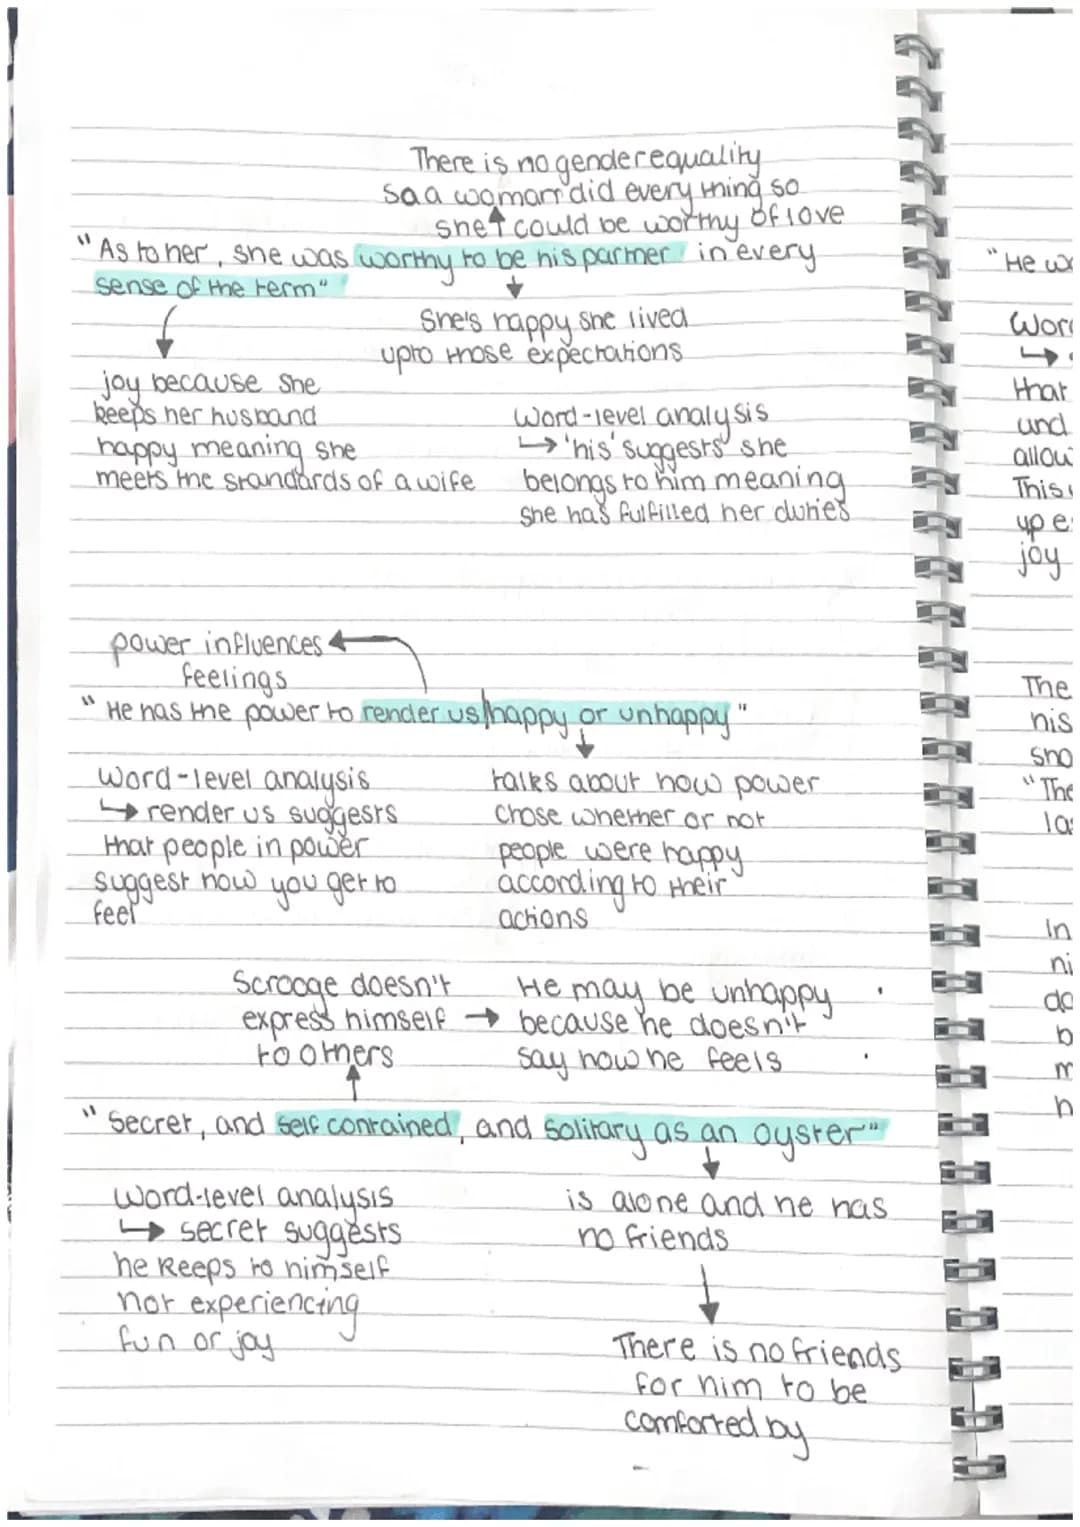 There is no gender equality
so a woman did everything so
she could be worthy of love
"As to her, she was worthy to be his partner in every
sense of the term"
She's happy she lived
upto those expectations
joy because she
keeps her husband
happy meaning she
meets the standards of a wife
Word-level analysis
↳ 'his' suggests she
belongs to him meaning
she has fulfilled her duties
power influences
feelings
"He has the power to render us happy or unhappy"
Word-level analysis
↳ render us suggests
that people in power
suggest how you get to
feel
talks about how power
chose whether or not
people were happy
according to their
actions
Scrooge doesn't
express himself →
to others
He may be unhappy
because he doesn't
say how he feels
"Secret, and self contained, and solitary as an oyster"
Word-level analysis
↳ secret suggests
he keeps to himself
not experiencing
fun or joy
is alone and he has
no friends
There is no friends
for him to be
comforted by
"He
Word
↳
that
und
allow
This
up e
joy
The
his
sho
"The
las
In
ni
do
b
m
h